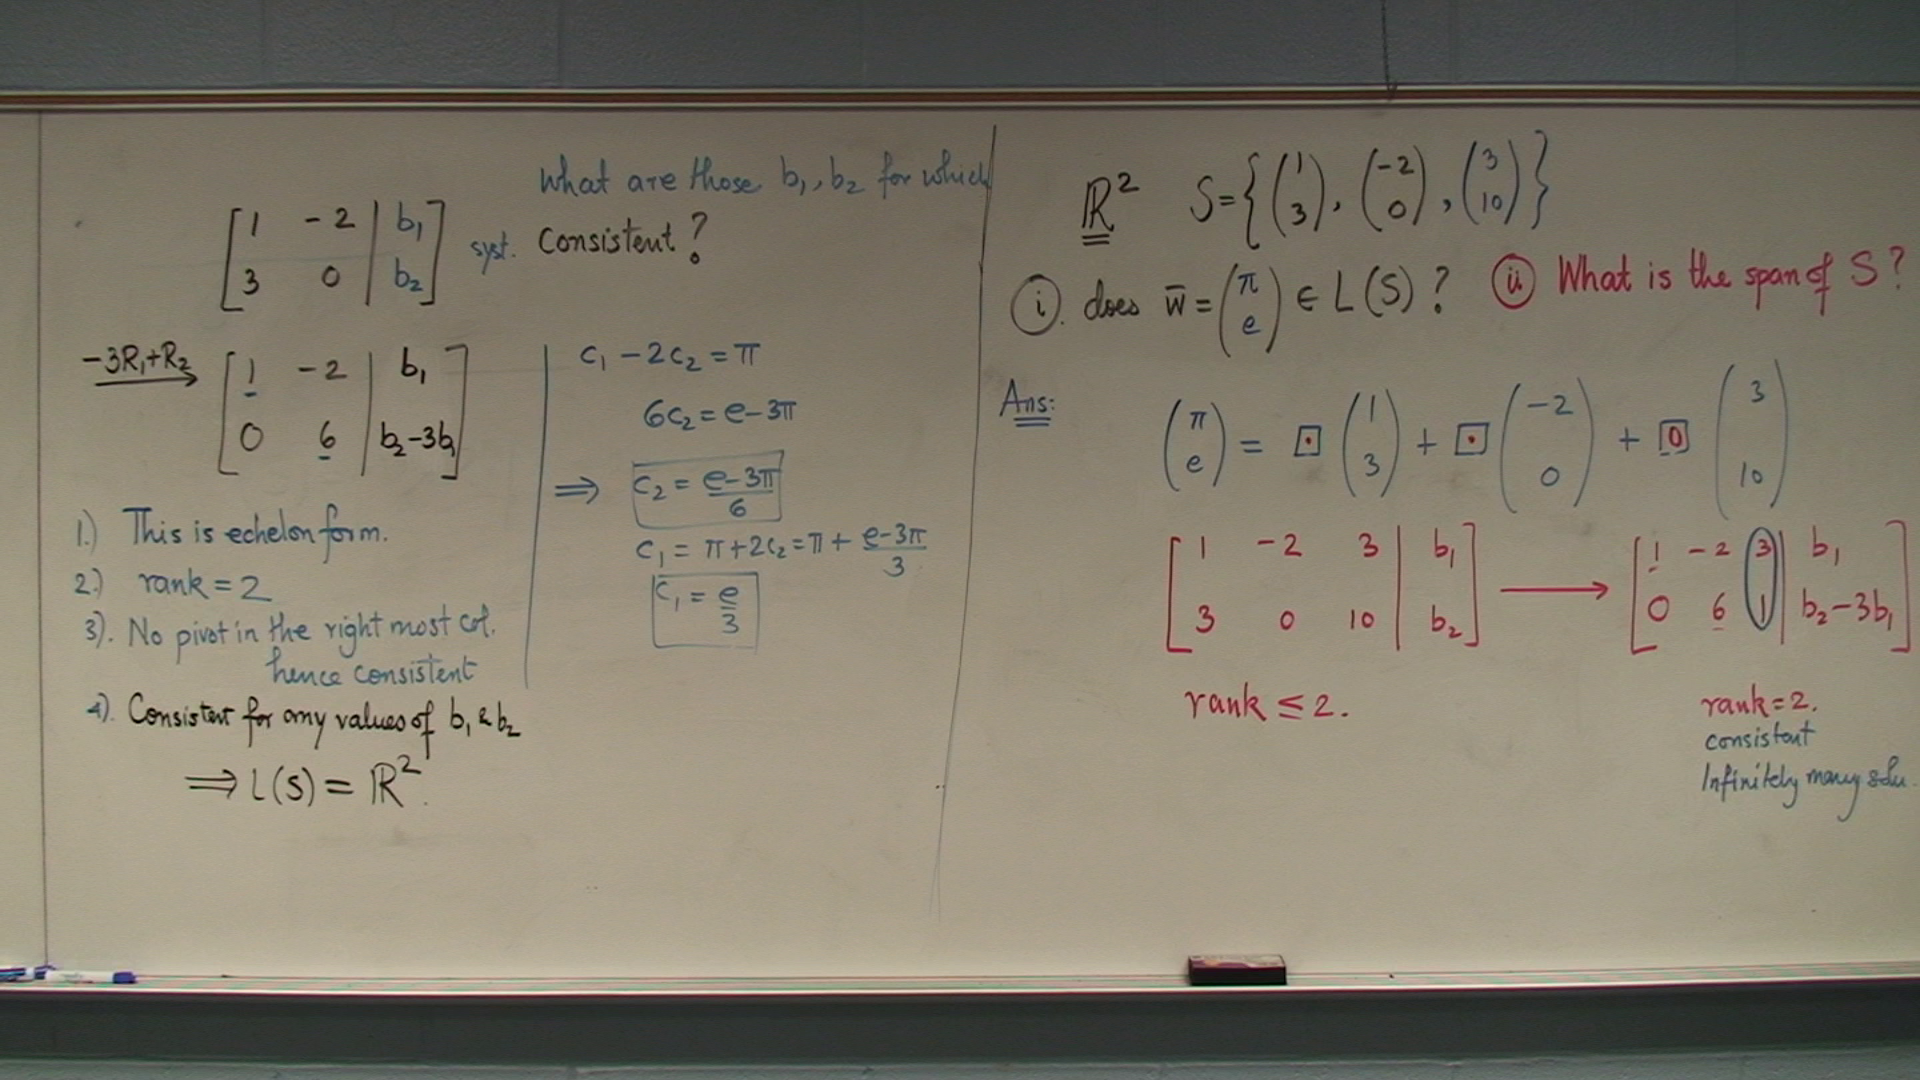 What are those b₁, b₂ for which
[1 -2 | b₁]
[3 0 | b₂]
syst. Consistent?
-3R₁+R₂
[1 -2 | b₁]
[0 6 | b₂-3b₁]
1.) This is echelon form.
2.) rank = 2
3). No pivot in the right most col.
hence consistent
4). Consistent for any values of b₁ & b₂
⟹ L(S) = ℝ².
c₁ - 2c₂ = π
6c₂ = e-3π
⟹ c₂ = (e-3π)/6
c₁ = π+2c₂ = π + (e-3π)/3
c₁ = e/3
ℝ² S = {(1 3), (-2 0), (3 10)}
(i). does w̄ = (π e) ∈ L(S)? (ii) What is the span of S?
Ans:
(π e) = ⊡ (1 3) + ⊡ (-2 0) + 0 (3 10)
[1 -2 3 | b₁] ⟶ [1 -2 3 | b₁]
[3 0 10 | b₂] [0 6 1 | b₂-3b₁]
rank ≤ 2.
rank = 2.
consistent
Infinitely many solu.